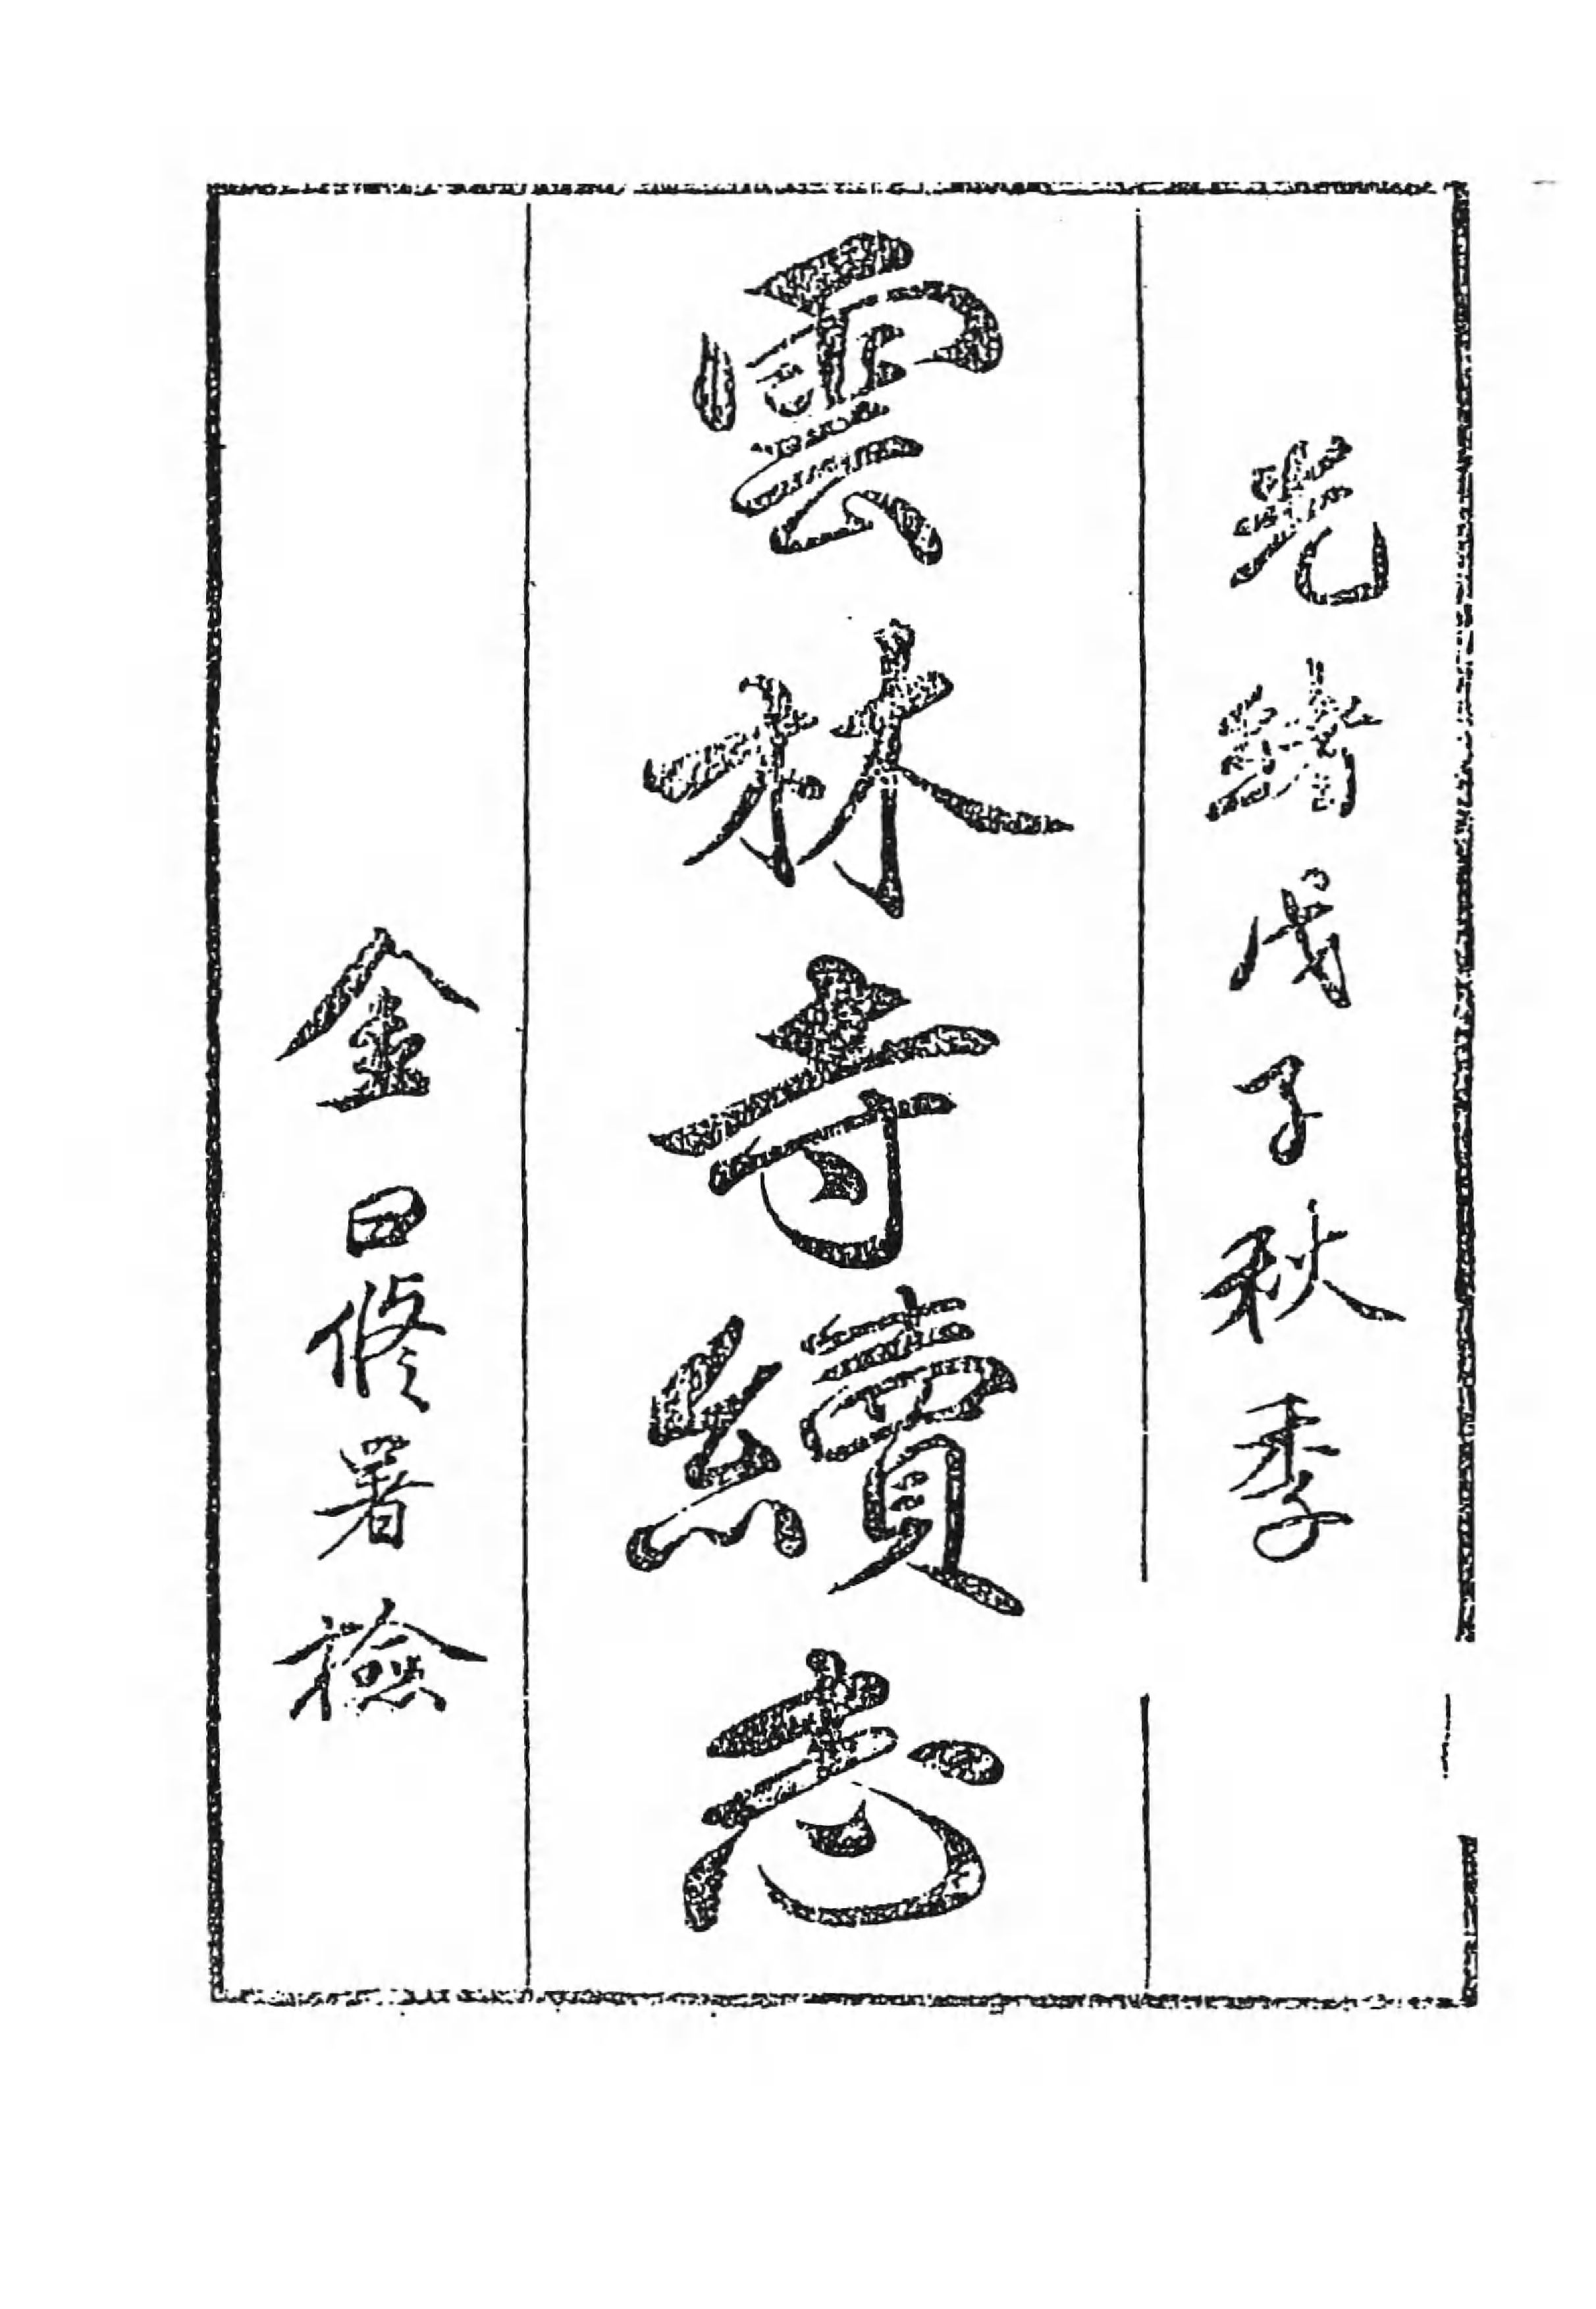 光緒戊子秋季
雲林寺續志
金曰修署檢